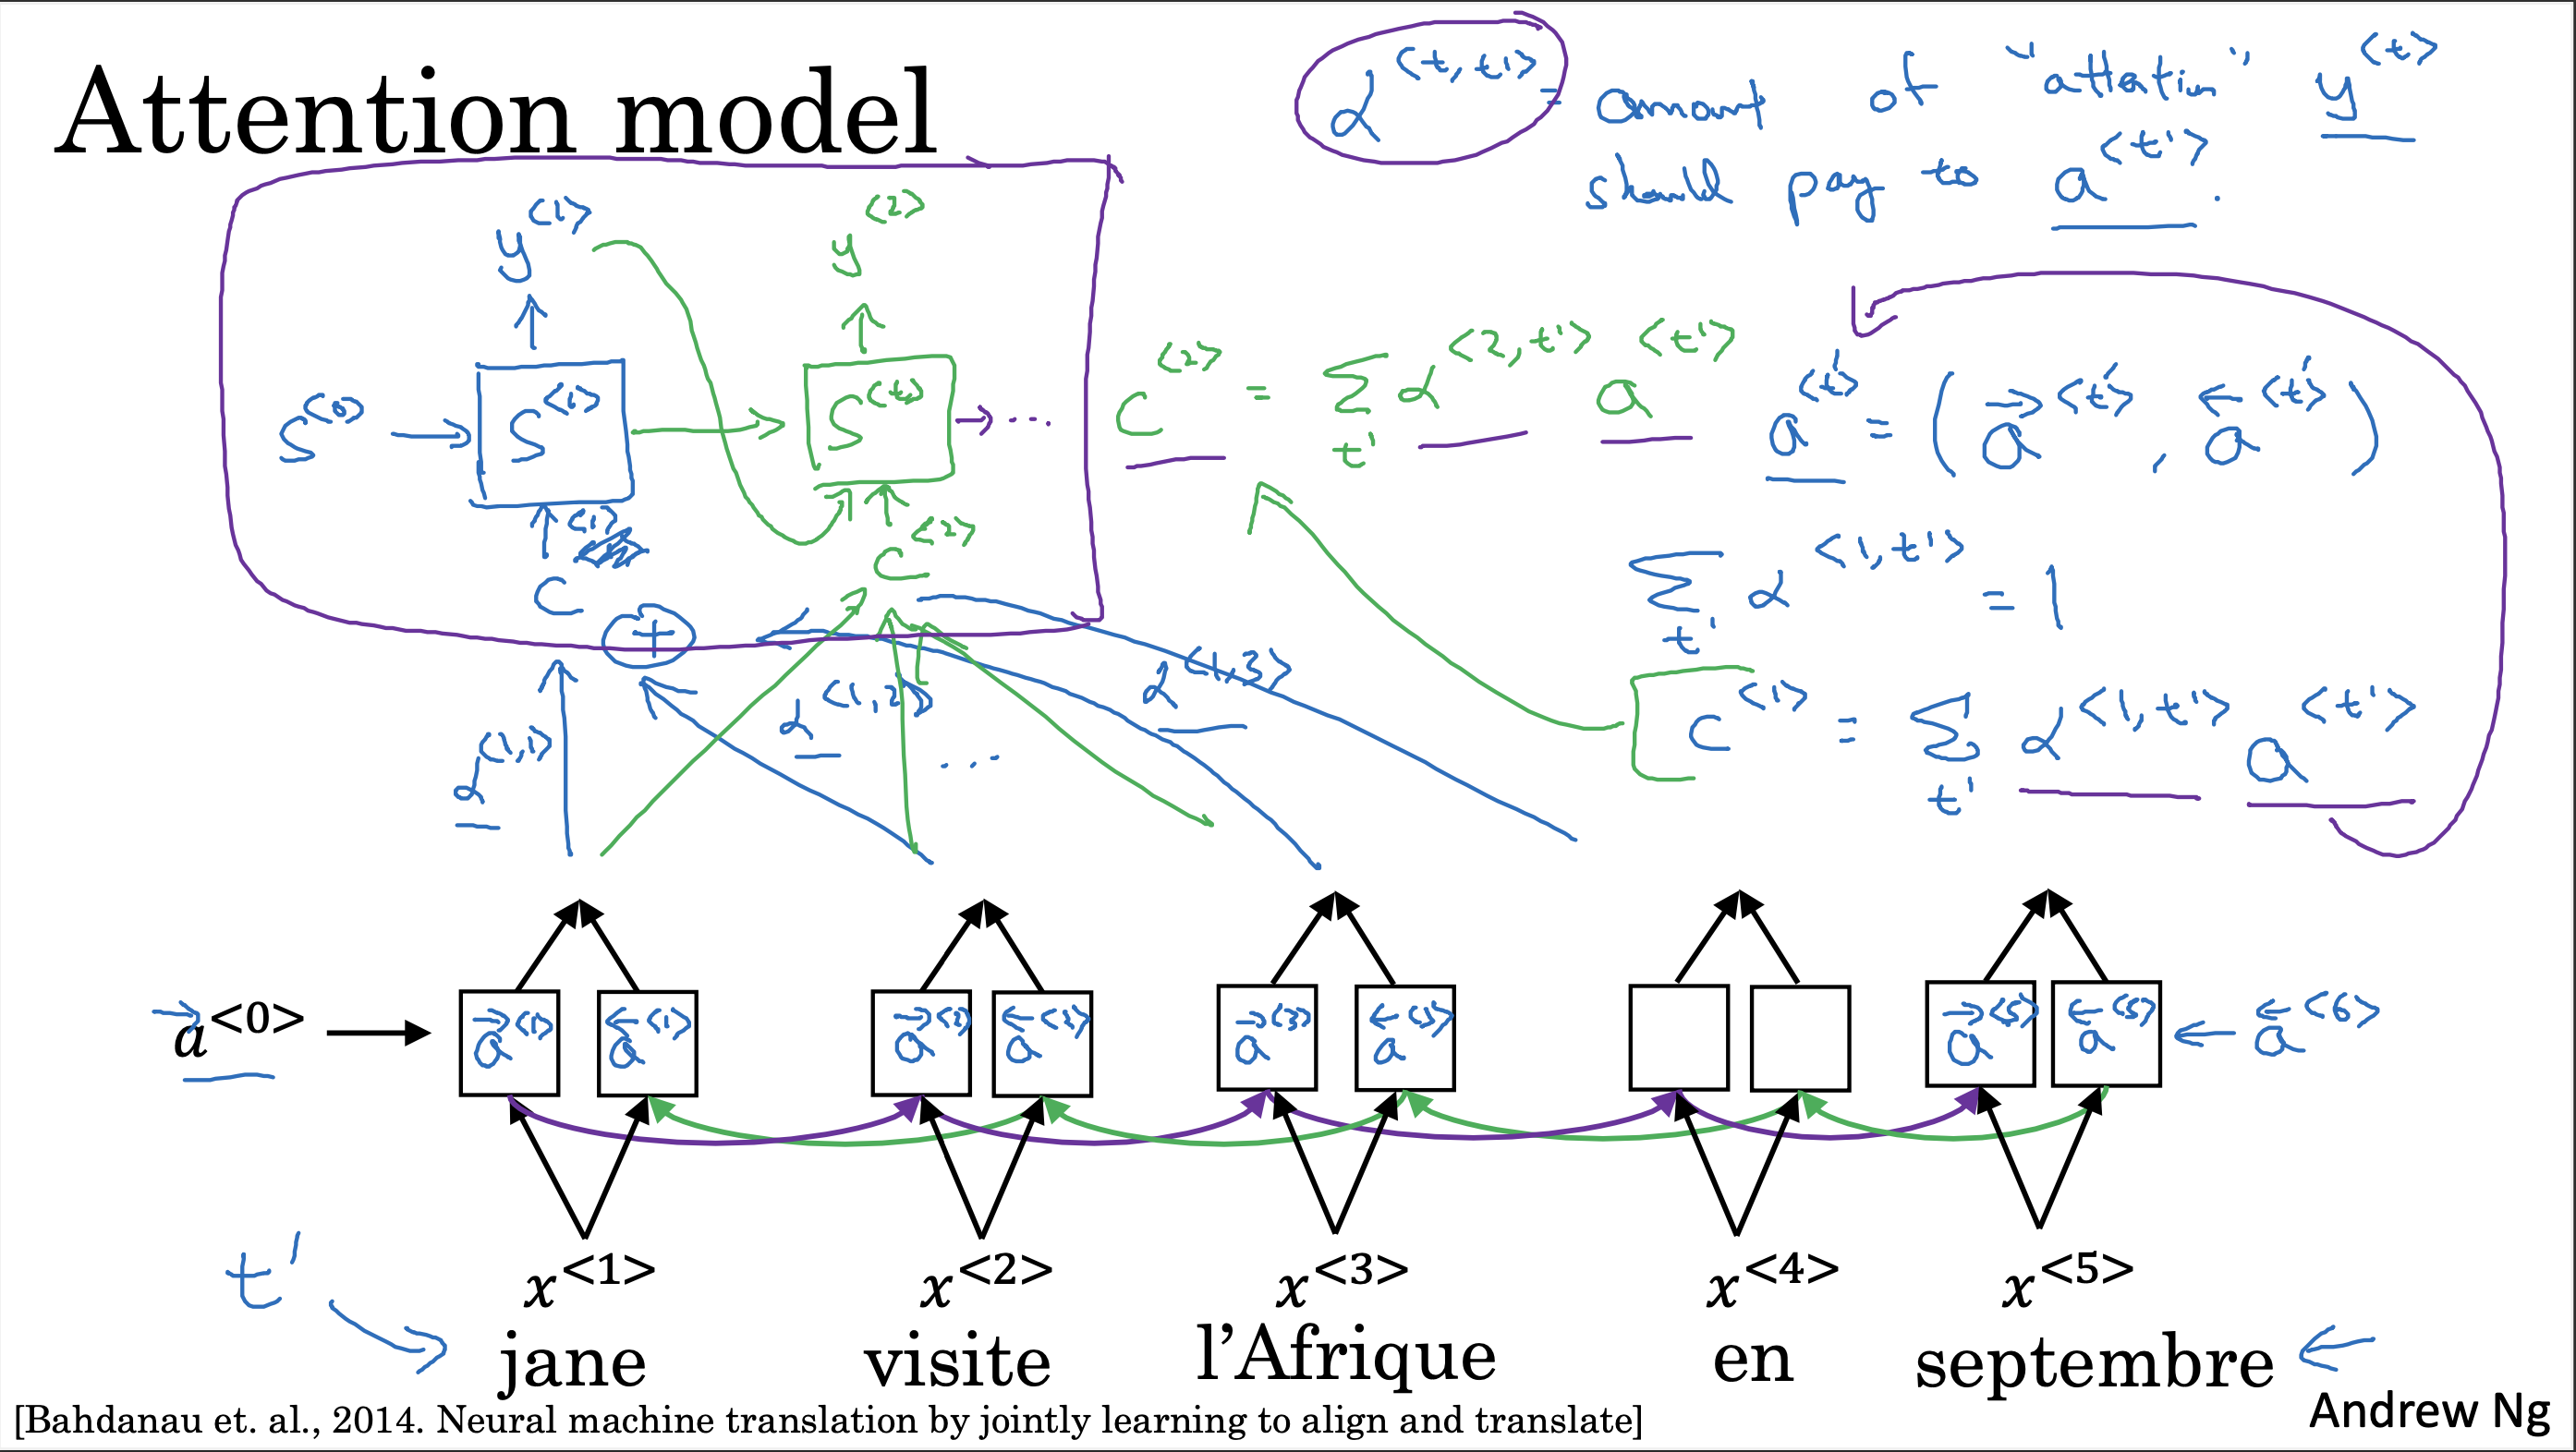 Attention model
α<t,t'> = amount of "attention" y<t>
should pay to a<t'>.
y<1> y<2>
s<0> → s<1> → s<t> → ...
c<2> = Σt' α<2,t'> a<t'>
a<t'> = (→a<t'>, ←a<t'>)
c<1> c<2>
+
Σt' α<1,t'> = 1
α<1,1> α<1,2> ... α<1,3>
c<1> = Σt' α<1,t'> a<t'>
→a<0> →a<1> ←a<1> →a<2> ←a<2> →a<3> ←a<3> →a<5> ←a<5> ← ←a<6>
t' x<1> x<2> x<3> x<4> x<5>
jane visite l’Afrique en septembre
[Bahdanau et. al., 2014. Neural machine translation by jointly learning to align and translate]
Andrew Ng